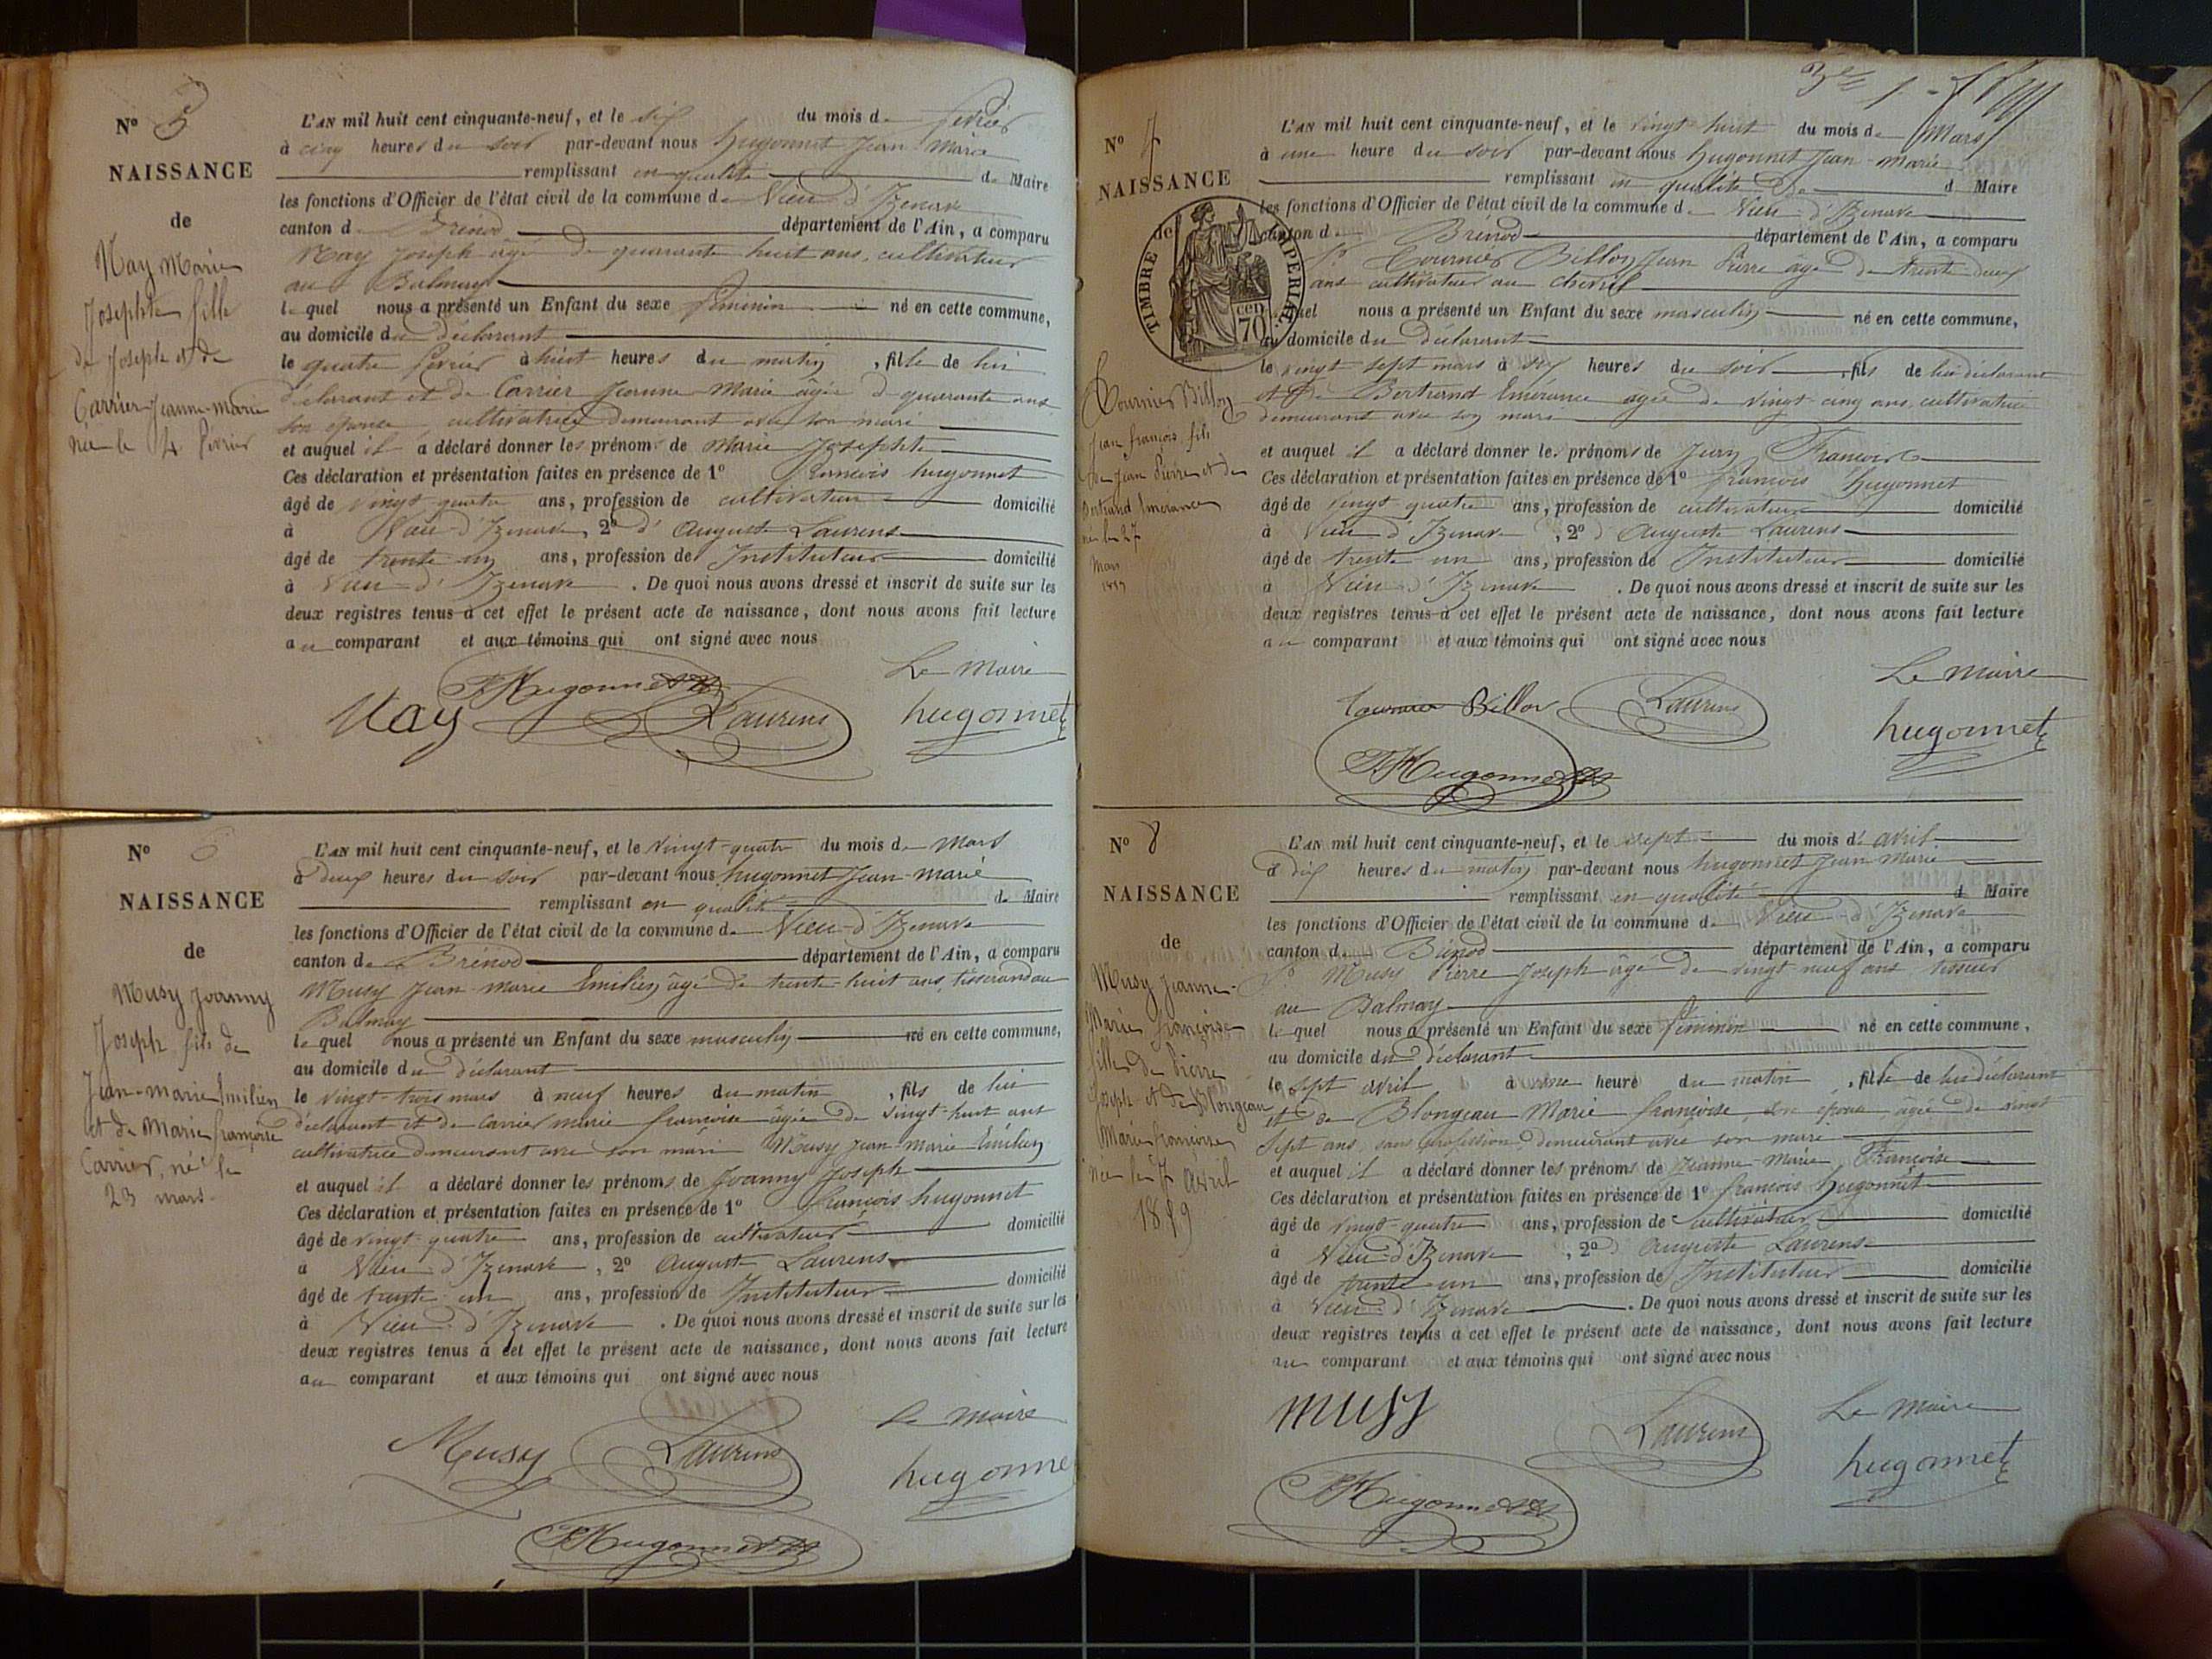 Nº 5
NAISSANCE
de
May Marie
Josephte fille
de Joseph et de
Carrier Jeanne-marie
née le 4 février
L'AN mil huit cent cinquante-neuf, et le six du mois de février
à cinq heures du soir par-devant nous hugonnet Jean-Marie
remplissant en qualité de Maire
les fonctions d'Officier de l'état civil de la commune de Vieu-d'Izenave
canton de Brénod département de l'Ain, a comparu
May Joseph âgé de quarante huit ans, cultivateur
au Balmay
lequel nous a présenté un Enfant du sexe féminin né en cette commune,
au domicile du déclarant
le quatre février à huit heures du matin, fille de lui
déclarant et de Carrier Jeanne-Marie âgée d quarante ans
son épouse, cultivatrice demeurant avec son mari
et auquel il a déclaré donner les prénoms de Marie Josephte
Ces déclaration et présentation faites en présence de 1º francois hugonnet
âgé de vingt-quatre ans, profession de cultivateur domicilié
à Vieu-d'Izenave, 2º d'August Laurens
âgé de trente un ans, profession de Instituteur domicilié
à Vieu-d'Izenave. De quoi nous avons dressé et inscrit de suite sur les
deux registres tenus à cet effet le présent acte de naissance, dont nous avons fait lecture
au comparant et aux témoins qui ont signé avec nous
Le Maire
May FHugonnet Laurens hugonnet
Nº 6
NAISSANCE
de
Musy Joanny
Joseph fils de
Jean-Marie Emilien
et de Marie françoise
Carrier, né le
23 mars.
L'AN mil huit cent cinquante-neuf, et le vingt-quatre du mois de Mars
à deux heures du soir par-devant nous hugonnet Jean-Marie
remplissant en qualité de Maire
les fonctions d'Officier de l'état civil de la commune de Vieu-d'Izenave
canton de Brénod département de l'Ain, a comparu
Musy Jean-Marie Emilien âgé de trente-huit ans, tisserand au
Balmay
lequel nous a présenté un Enfant du sexe masculin né en cette commune,
au domicile du déclarant
le vingt-trois mars à neuf heures du matin, fils de lui
déclarant et de Carrier Marie françoise âgée de vingt-huit ans
cultivatrice demeurant avec son mari Musy Jean-Marie-Emilien
et auquel il a déclaré donner les prénoms de Joanny Joseph
Ces déclaration et présentation faites en présence de 1º francois hugonnet
âgé de vingt-quatre ans, profession de cultivateur domicilié
à Vieu-d'Izenave, 2º August Laurens
âgé de trente-un ans, profession de Instituteur domicilié
à Vieu-d'Izenave. De quoi nous avons dressé et inscrit de suite sur les
deux registres tenus à cet effet le présent acte de naissance, dont nous avons fait lecture
au comparant et aux témoins qui ont signé avec nous
Le Maire
Musy Laurens hugonne
FHugonnet
Nº 7
NAISSANCE
de
TIMBRE IMPERIAL
70 cen
Tournier Billon
Jean françois fils
de Jean Pierre et de
Bertrand Emérance
né le 27
Mars
1859
L'AN mil huit cent cinquante-neuf, et le vingt-huit du mois de Mars
à une heure du soir par-devant nous hugonnet Jean-Marie
remplissant en qualité de d Maire
les fonctions d'Officier de l'état civil de la commune de Vieu-d'Izenave
canton de Brénod département de l'Ain, a comparu
Sr Tournier Billon Jean Pierre âgé de trente-deux
ans cultivateur au chevril
lequel nous a présenté un Enfant du sexe masculin né en cette commune,
au domicile du déclarant
le vingt sept mars à six heures du soir, fils de lui déclarant
et de Bertrand Emérance âgée de vingt-cinq ans, cultivatrice
demeurant avec son mari
et auquel il a déclaré donner les prénoms de Jean François
Ces déclaration et présentation faites en présence de 1º francois hugonnet
âgé de vingt-quatre ans, profession de cultivateur domicilié
à Vieu d'Izenave, 2º d'Auguste Laurens
âgé de trente-un ans, profession de Instituteur domicilié
à Vieu-d'Izenave. De quoi nous avons dressé et inscrit de suite sur les
deux registres tenus à cet effet le présent acte de naissance, dont nous avons fait lecture
au comparant et aux témoins qui ont signé avec nous
Le Maire
tournier Billon Laurens hugonnet
FHugonnet
Nº 8
NAISSANCE
de
Musy Jeanne-
Marie françoise
fille de Pierre
Joseph et de Blongeau
Marie françoise
née le 7 Avril
1859
L'AN mil huit cent cinquante-neuf, et le sept du mois d'avril
à dix heures du matin par-devant nous hugonnet Jean-Marie
remplissant en qualité d Maire
les fonctions d'Officier de l'état civil de la commune de Vieu-d'Izenave
canton de Brénod département de l'Ain, a comparu
Sr Musy Pierre Joseph âgé de vingt neuf ans tisseur
au Balmay
lequel nous a présenté un Enfant du sexe féminin né en cette commune,
au domicile du déclarant
le sept avril à une heure du matin, fille de lui déclarant
et de Blongeau Marie françoise, son épouse âgée de vingt
sept ans, sans profession demeurant avec son mari
et auquel il a déclaré donner les prénoms de Jeanne-Marie Françoise
Ces déclaration et présentation faites en présence de 1º francois hugonnet
âgé de vingt-quatre ans, profession de cultivateur domicilié
à Vieu-d'Izenave, 2º d'Auguste Laurens
âgé de trente-un ans, profession de Instituteur domicilié
à Vieu-d'Izenave. De quoi nous avons dressé et inscrit de suite sur les
deux registres tenus à cet effet le présent acte de naissance, dont nous avons fait lecture
au comparant et aux témoins qui ont signé avec nous
Le Maire
musy Laurens hugonnet
FHugonnet